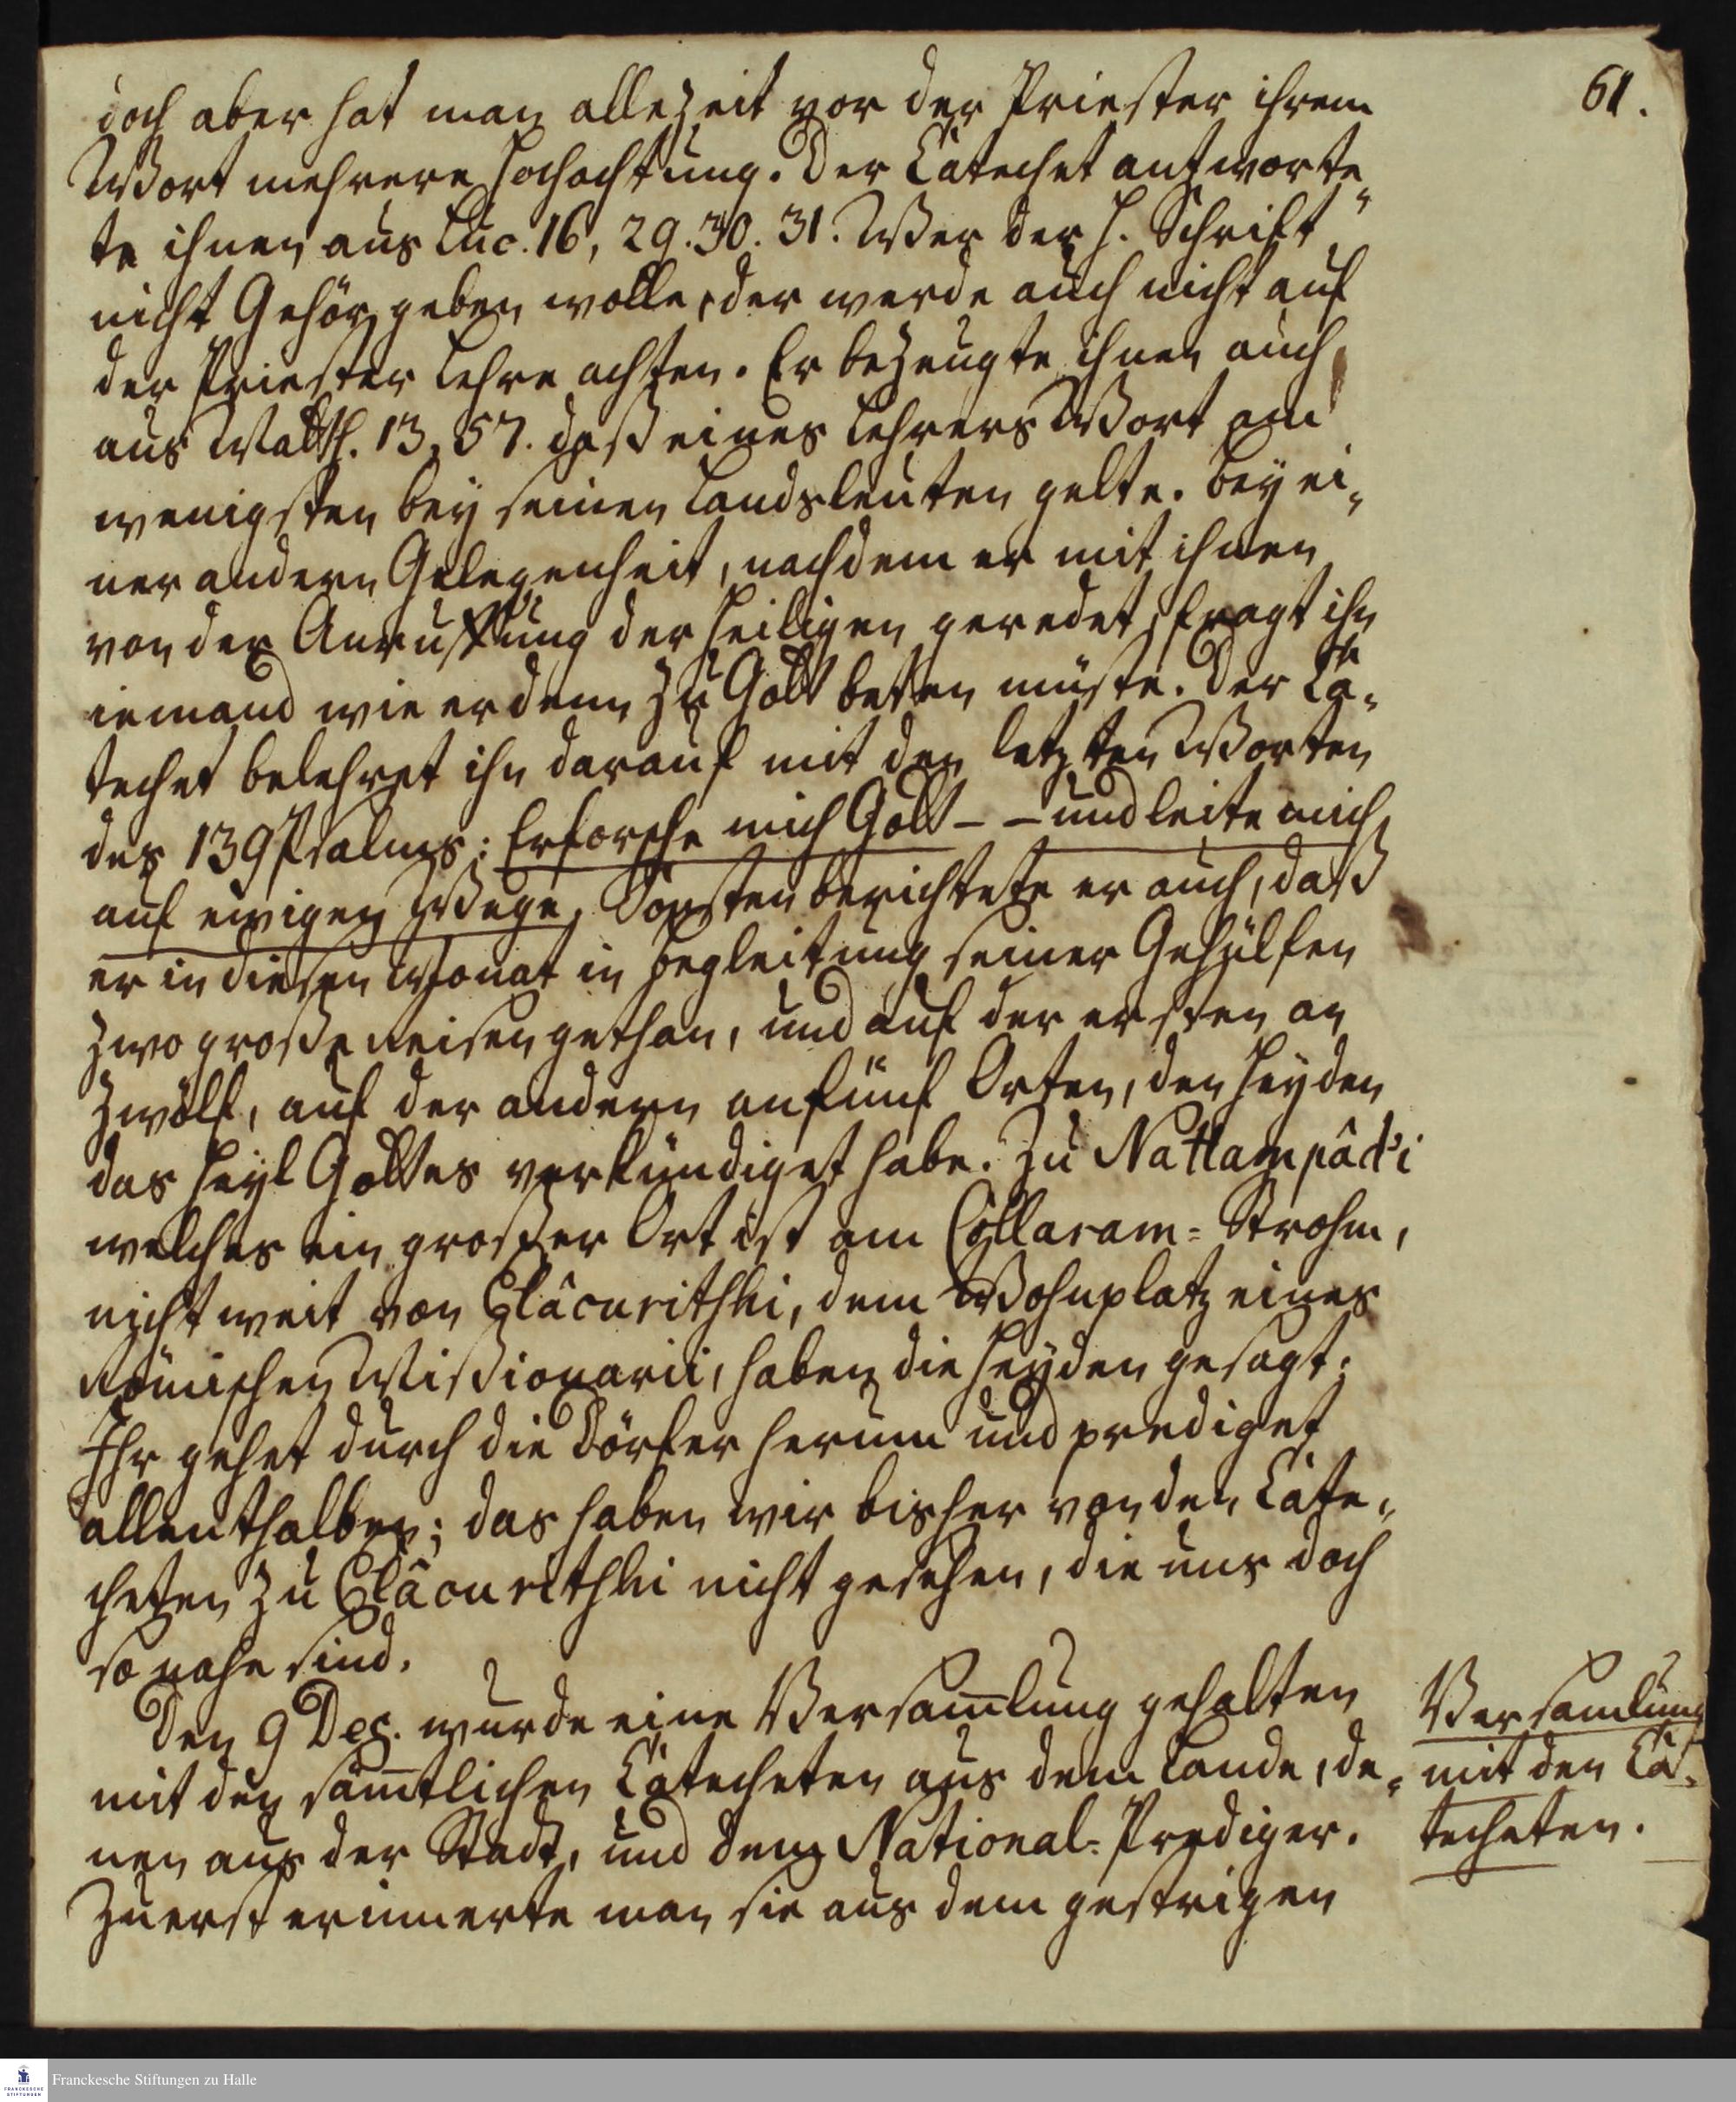 61.
doch aber hat man allezeit vor der Priester ihrem
Wort mehrere Hochachtung. Der Catechet antworte„
te ihnen aus Luc. 16, 29. 30. 31. Wer der H. Schrift
nicht Gehör geben wolle, der werde auch nicht auf
der Priester Lehre achten. Er bezeugte ihnen auch
aus Matth. 13, 57. daß eines Lehrers Wort am
wenigsten bey seinen Landsleuten gelte. Bey ei„
ner andern Gelegenheit, nachdem er mit ihnen
von der Anruffung der Heiligen geredet, fragt ihn
iemand wie er denn zu Gott beten müste. Der Ca„
techet belehret ihn darauf mit den letzten Worten
des 139 Psalms: Erforsche mich Gott – – und leite mich
auf ewigen Wege. Sonsten berichtete er auch, daß
er in diesen Monat in Begleitung seiner Gehülfen
zwo große Reisen gethan, und auf der ersten an
zwölf, auf der andern an fünf Orten, den Heyden
das Heyl Gottes verkündiget habe. Zu Nattampâdi
welches ein großer Ort ist am Collaram=Strohm,
nicht weit von Elâcurithki, dem Wohnplatz eines
Römischen Missionarii, haben die Heyden gesagt:
Ihr gehet durch die Dörfer herum und prediget
allenthalben; das haben wir bisher von den Cate„
cheten zu Elâcurithki nicht gesehen, die uns doch
so nahe sind.
Den 9 Dec. wurde eine Versam̅lung gehalten
mit den säm̅tlichen Catecheten aus dem Lande, de„
nen aus der Stadt, und dem National=Prediger.
Zuerst erinnerte man sie aus dem gestrigen
Versamlung
mit den Ca„
techeten.
Franckesche Stiftungen zu Halle
FRANCKESCHE
STIFTUNGEN